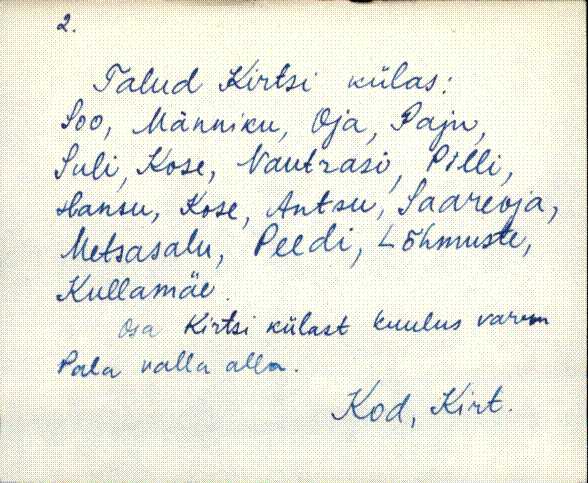 2.
Talud Kirtsi külas:
Soo, Männiku, Oja, Paju,
Suli, Kose, Nautrasi, Pilli,
Hansu, Kose, Antsu, Saareoja,
Metsasalu, Peedi, Lõhmuste,
Kullamäe.
Osa Kirtsi külast kuulus varem
Pala valla alla.
Kod, Kirt.